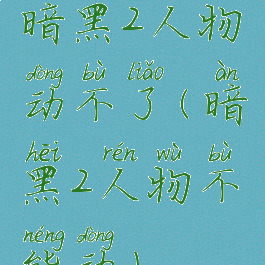 暗黑2人物
dòng bù liǎo àn
动不了(暗
hēi rén wù bù
黑2人物不
néng dòng
能动)